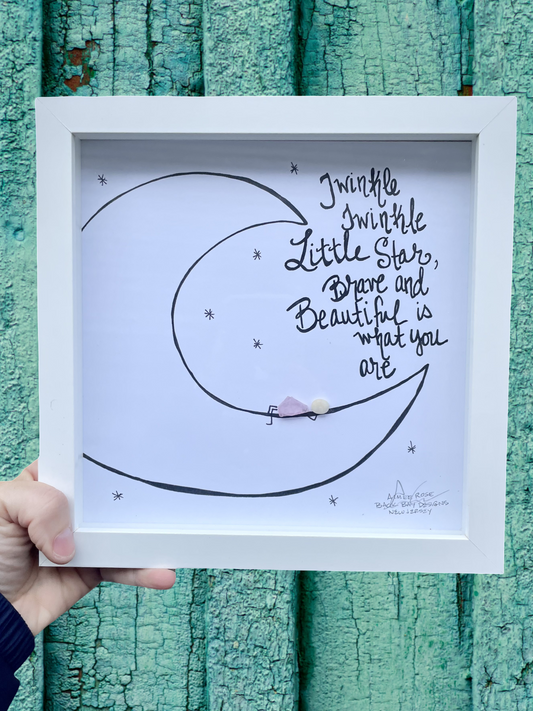 Twinkle
Twinkle
Little Star,
Brave and
Beautiful is
what you
are
Rose
Back Bay Designs